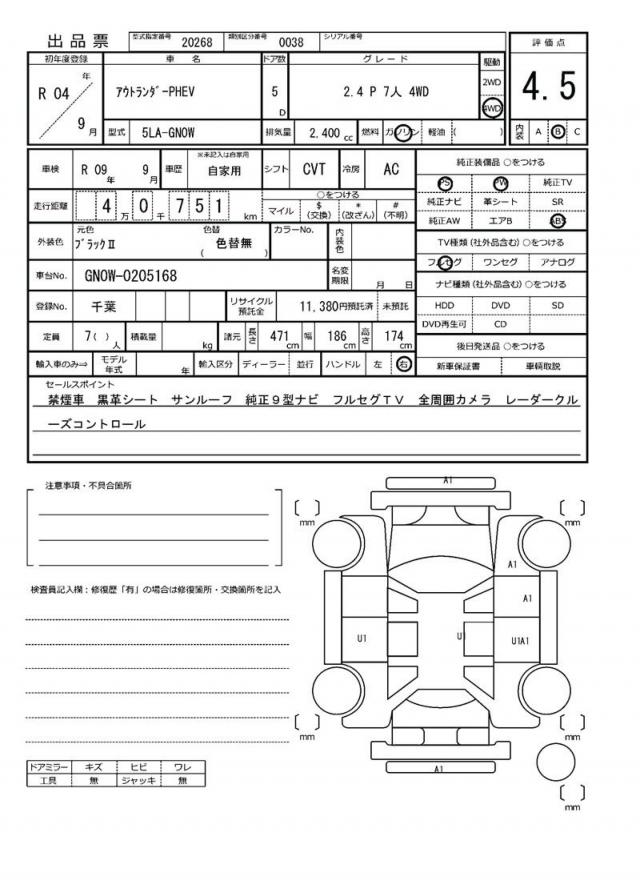 出品票 型式指定番号 20268 類別区分番号 0038 シリアル番号
評価点
4.5
初年度登録 車名 ドア数 グレード 駆動
R 04 年 9 月 アウトランダｰPHEV 5 D 2.4 P 7人 4WD 2WD 4WD
型式 5LA-GN0W 排気量 2,400 cc 燃料 ガソリン 軽油 ( ) 内装 A B C
車検 R 09 年 9 月 車歴 ※未記入は自家用 自家用 シフト CVT 冷房 AC
走行距離 4 万 0 千 7 5 1 km ○をつける マイル $ (交換) * (改ざん) # (不明)
外装色 元色 ブラックⅡ 色替 ( 色替無 ) カラーNo. 内装色
車台No. GN0W-0205168 名変期限 月 日
登録No. 千葉 リサイクル預託金 11,380円預託済 未預託
定員 7( ) 人 積載量 kg 諸元 長さ 471 cm 幅 186 cm 高さ 174 cm
輸入車のみ⇨ モデル年式 年 輸入区分 ディーラー 並行 ハンドル 左 右
純正装備品 ○をつける
PS PW 純正TV
純正ナビ 革シート SR
純正AW エアB ABS
TV種類 (社外品含む) ○をつける
フルセグ ワンセグ アナログ
ナビ種類 (社外品含む) ○をつける
HDD DVD SD
DVD再生可 CD
後日発送品 ○をつける
新車保証書 車輌取説
セールスポイント
禁煙車 黒革シート サンルーフ 純正９型ナビ フルセグＴＶ 全周囲カメラ レーダークル
ーズコントロール
注意事項・不具合箇所
検査員記入欄：修復歴「有」の場合は修復箇所・交換箇所を記入
ドアミラー キズ ヒビ ワレ
工具 無 ジャッキ 無
A1
〔 〕 mm
〔 〕 mm
A1
A1
U1
U1
U1A1
〔 〕 mm
〔 〕 mm
A1
〔 〕 mm